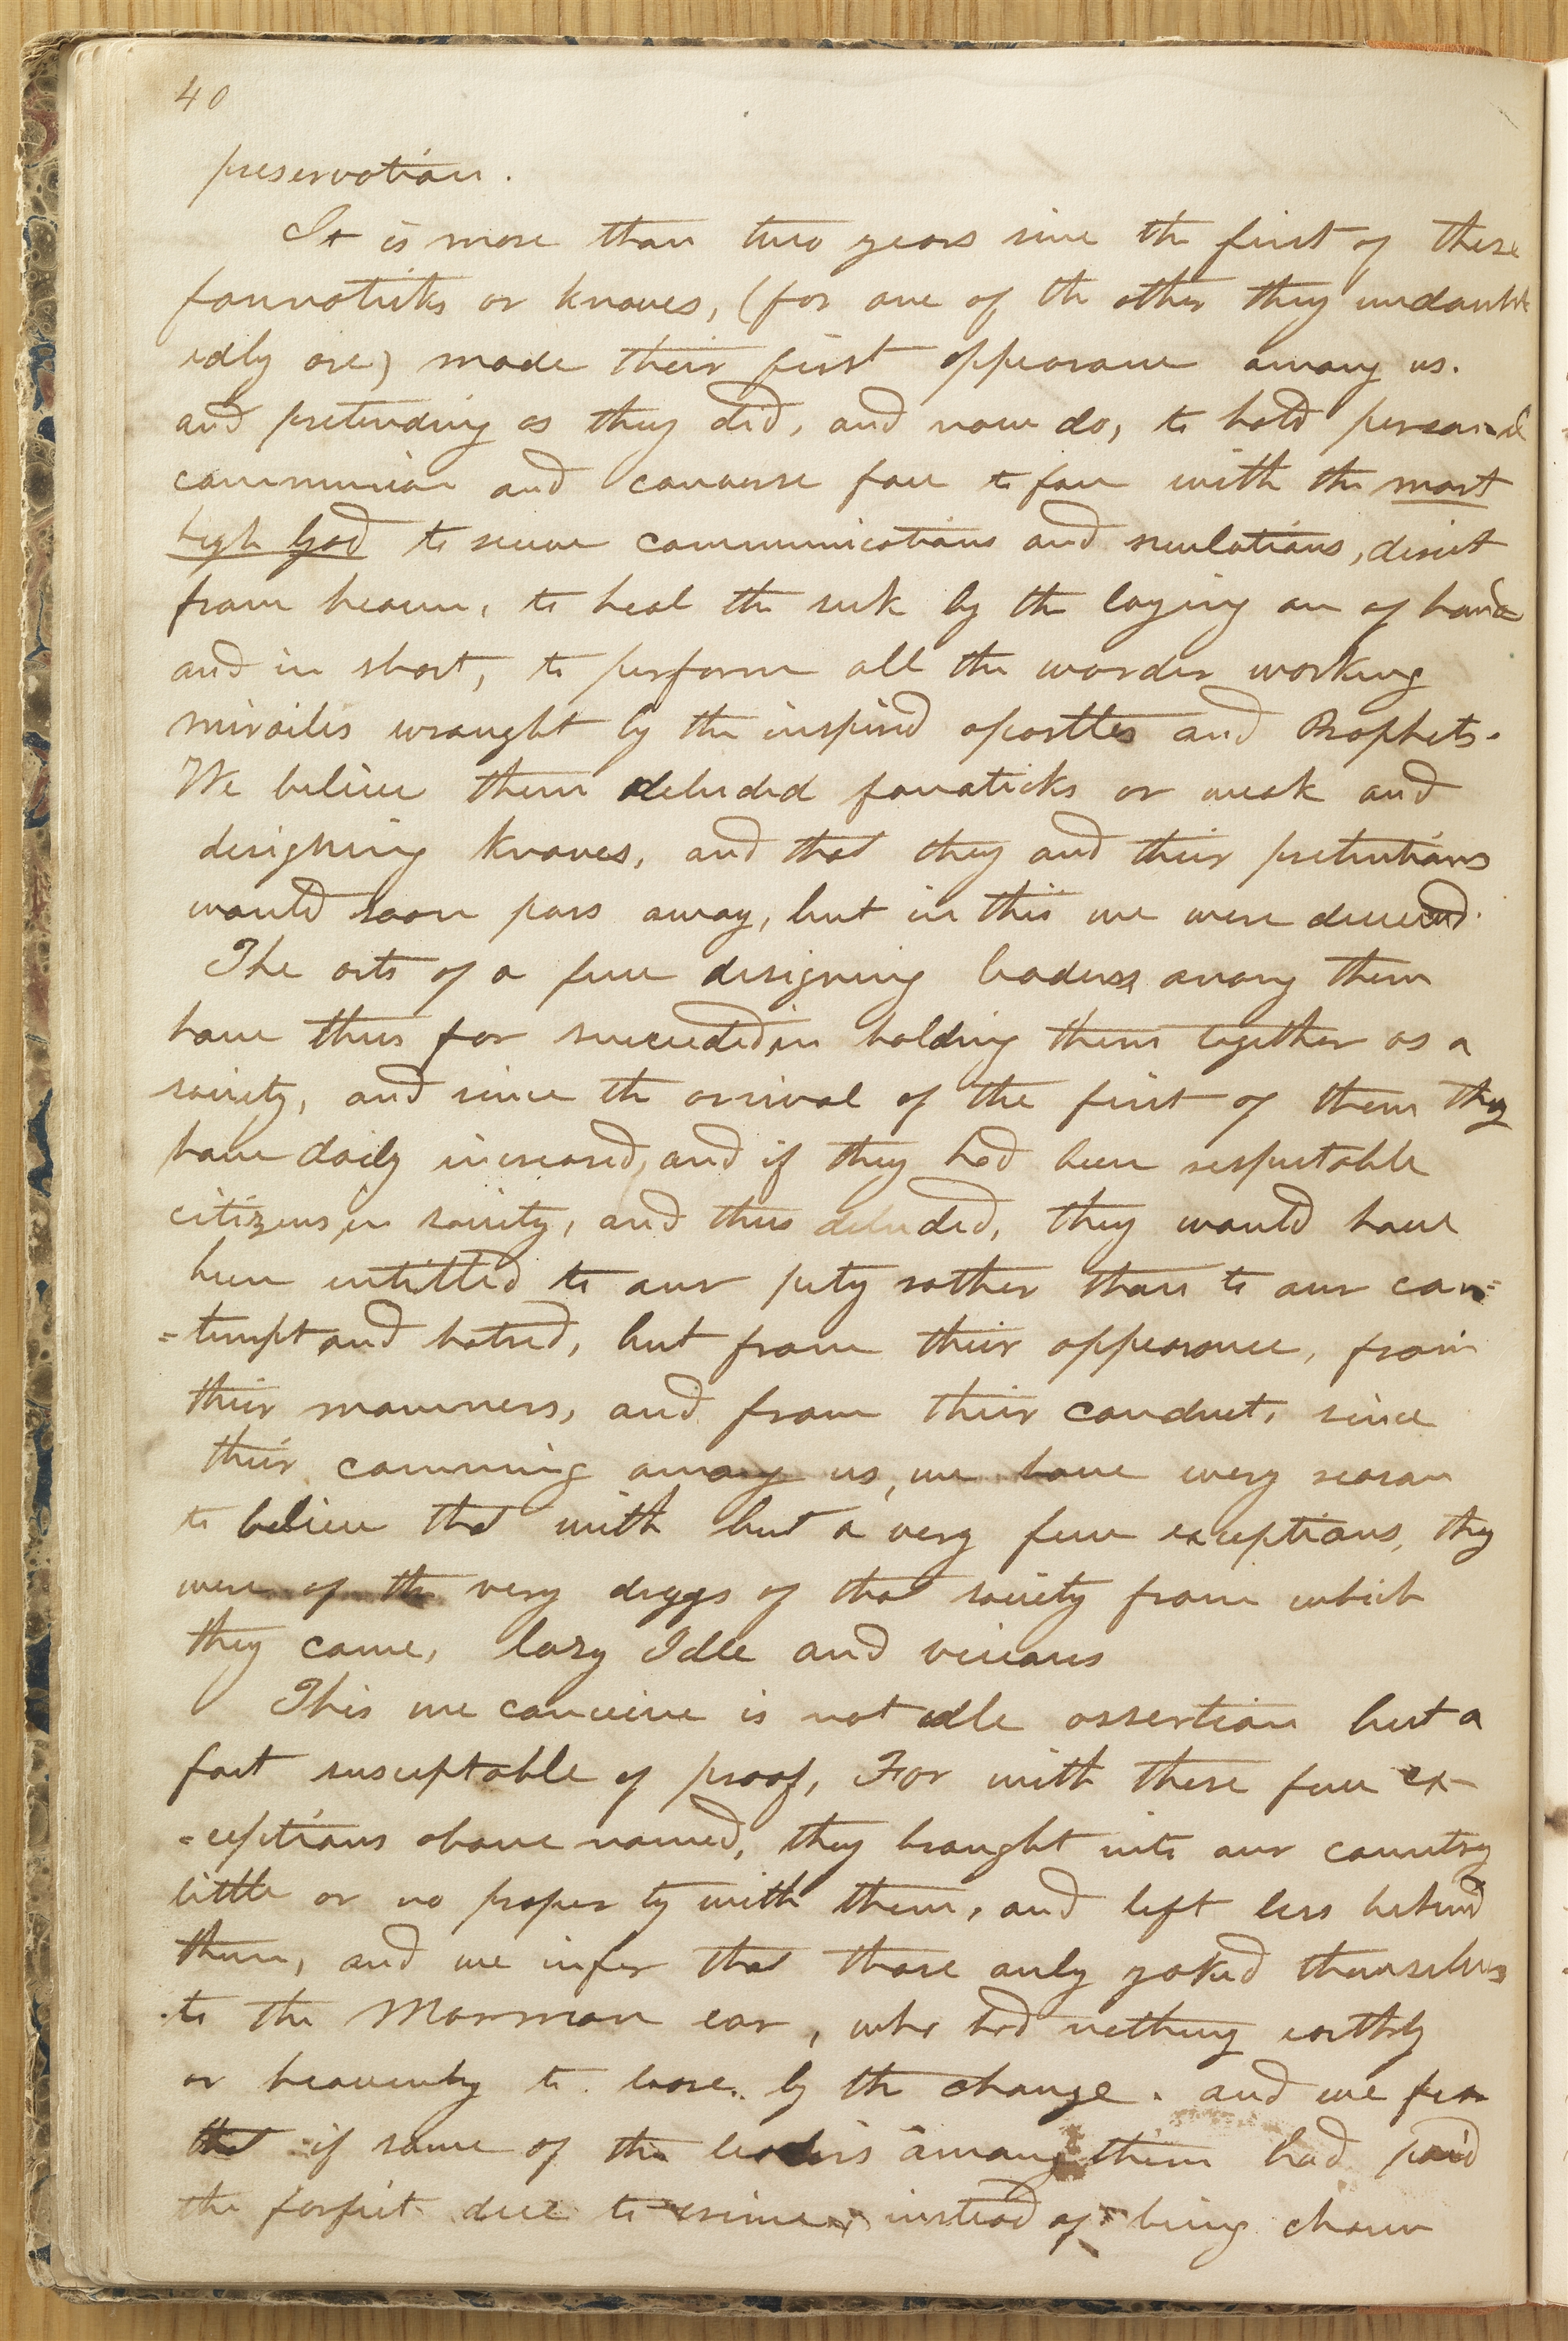 40
preservation.
It is more than two years since the first of these
fannaticks or knaves, (for one of the other they undoubt
edly are) made their first appearance among us.
and pretending as they did, and now do, to hold personal
communion and converse face to face with the most
high God to receive communications and revelations, direct
from heaven, to heal the sick by the laying on of hands
and in short, to perform all the wonder working
miracles wrought by the inspired apostles and Prophets.
We believe them deluded fanaticks or weak and
designing knaves, and that they and their pretentions
would soon pass away, but in this we were deceived.
The arts of a few designing leaders among them
have thus far succeeded in holding them together as a
society, and since the arrival of the first of them they
have daily increased, and if they had been respectable
citizens, in society, and thus deluded, they would have
been entitled to our pity rather than to our con=
=tempt and hatred, but from their appearance, from
their manners, and from their conduct, since
their comming among us, we have every reason
to believe that with but a very few exceptions, they
were of the very dreggs of that society from which
they came, lazy Idle and vicious
This we conceive is not idle assertion but a
fact susceptable of proof, For with these few ex-
=ceptions above named, they brought into our country
little or no property with them, and left less behind
them, and we infer that those only yoked themselves
to the Mormon car, who had nothing earthly
or heavenly to loose. by the change. and we fear
that if some of the leaders among them had paid
the forfeit due to crime, instead of being chosen